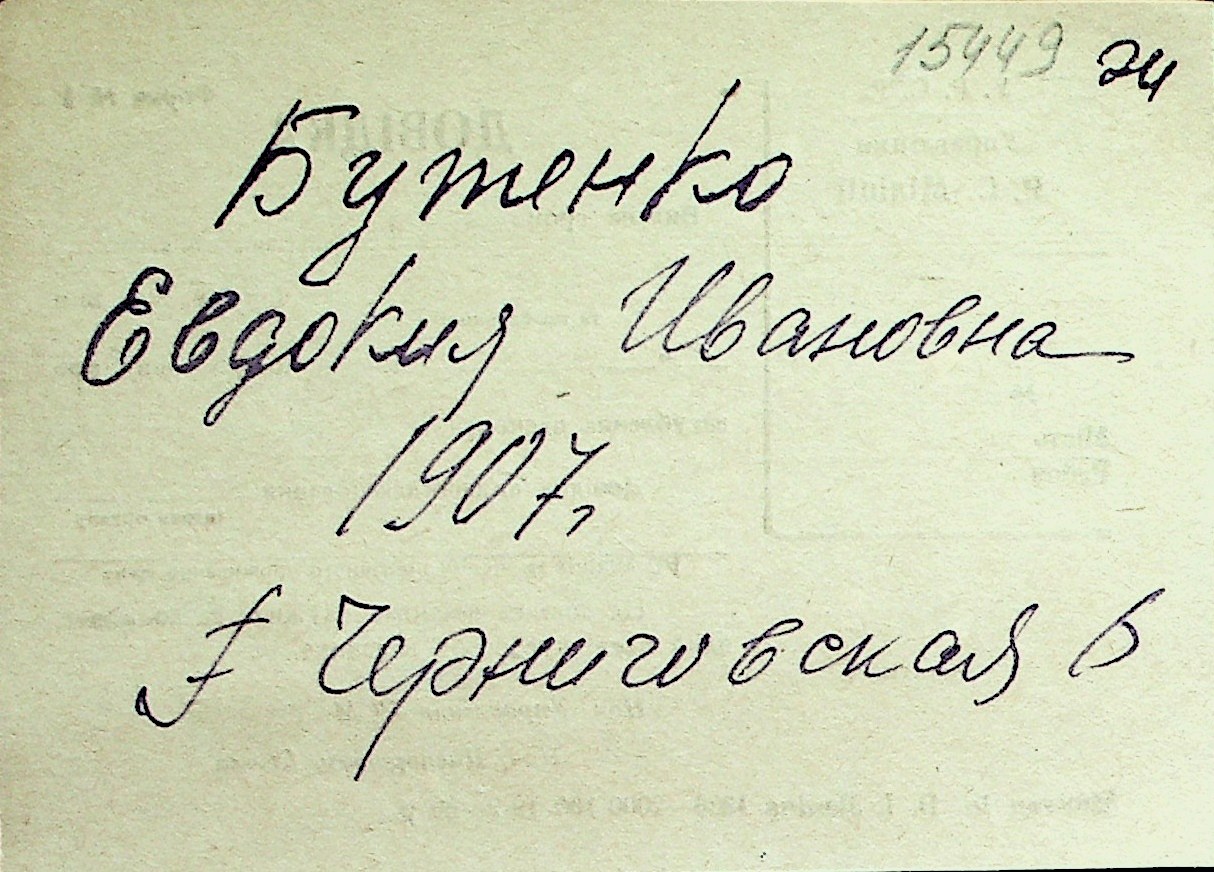 15449 ж
Бутенко
Евдокия Ивановна
1907г.
I Черниговская 6